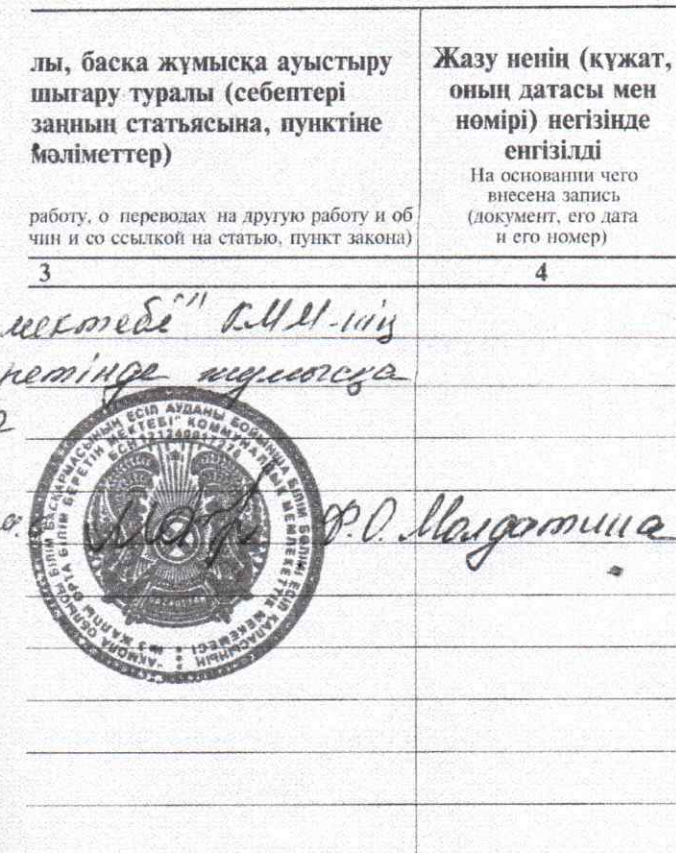 лы, басқа жұмысқа ауыстыру
шығару туралы (себептері
заңның статьясына, пунктіне
мәліметтер)
работу, о переводах на другую работу и об
чин и со ссылкой на статью, пункт закона)
Жазу ненің (құжат,
оның датасы мен
нөмірі) негізінде
енгізілді
На основании чего
внесена запись
(документ, его дата
и его номер)
3
4
мектебі" КММ-нің
ретінде жұмысқа
"АҚМОЛА ОБЛЫСЫ БІЛІМ БАСҚАРМАСЫНЫҢ ЕСІЛ АУДАНЫ БОЙЫНША БІЛІМ БӨЛІМІ ЕСІЛ ҚАЛАСЫНЫҢ
№3 ЖАЛПЫ ОРТА БІЛІМ БЕРЕТІН МЕКТЕБІ" КОММУНАЛДЫҚ МЕМЛЕКЕТТІК МЕКЕМЕСІ
Ф.О. Молдатина